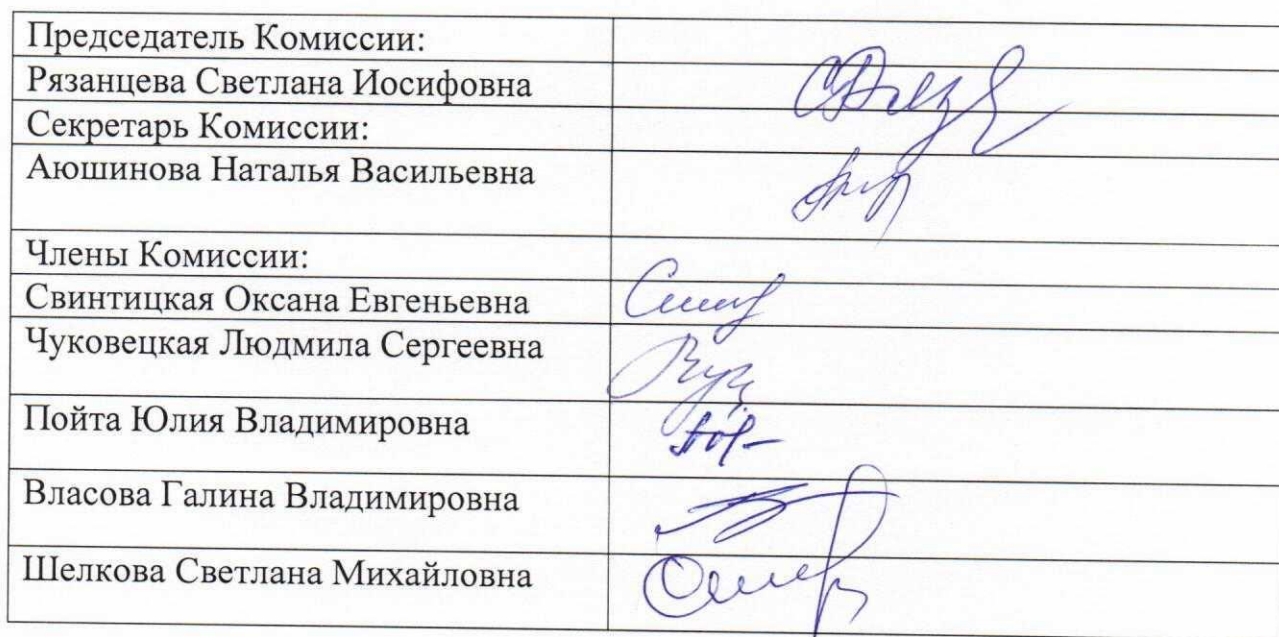 Председатель Комиссии:
Рязанцева Светлана Иосифовна
Секретарь Комиссии:
Аюшинова Наталья Васильевна
Члены Комиссии:
Свинтицкая Оксана Евгеньевна
Чуковецкая Людмила Сергеевна
Пойта Юлия Владимировна
Власова Галина Владимировна
Шелкова Светлана Михайловна